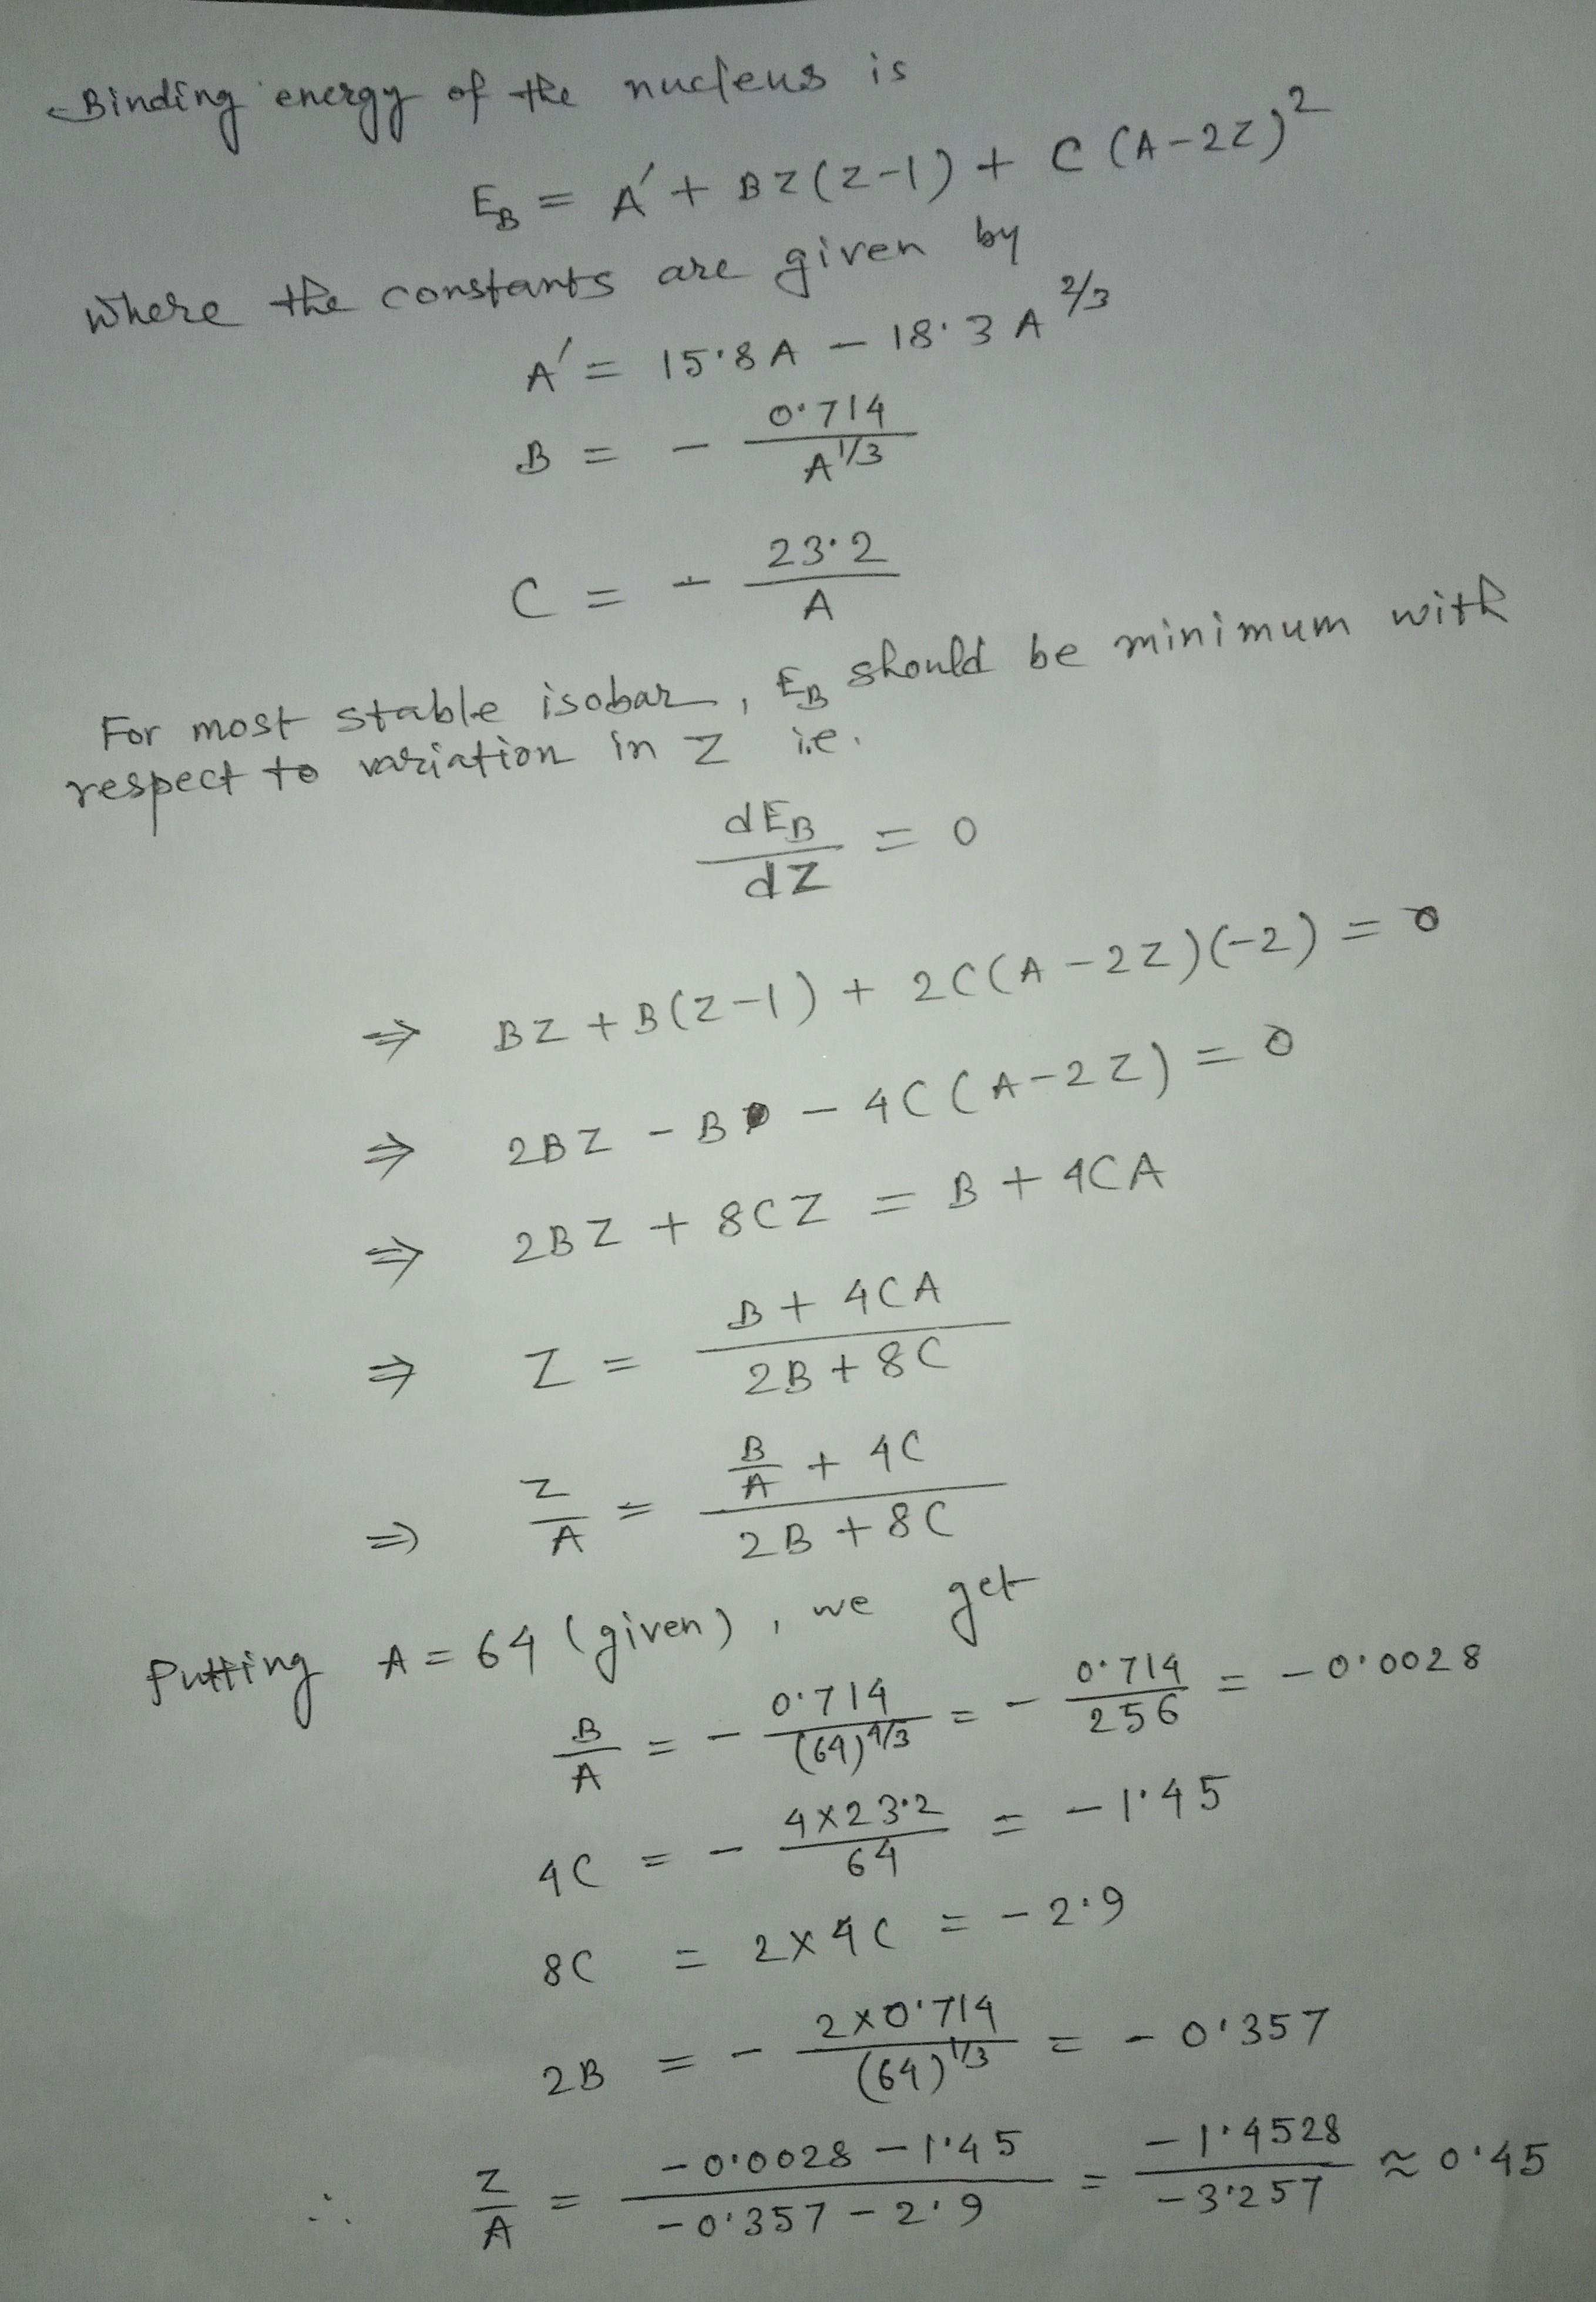 Binding energy of the nucleus is
E_B = A' + BZ(Z-1) + C(A-2Z)^2
where the constants are given by
A' = 15.8A - 18.3A^2/3
B = - 0.714 / A^1/3
C = - 23.2 / A
For most stable isobar, E_B should be minimum with
respect to variation in Z i.e.
dE_B / dZ = 0
⇒ BZ + B(Z-1) + 2C(A-2Z)(-2) = 0
⇒ 2BZ - B - 4C(A-2Z) = 0
⇒ 2BZ + 8CZ = B + 4CA
⇒ Z = (B + 4CA) / (2B + 8C)
⇒ Z/A = (B/A + 4C) / (2B + 8C)
Putting A = 64 (given), we get
B/A = - 0.714 / (64)^4/3 = - 0.714 / 256 = - 0.0028
4C = - 4×23.2 / 64 = - 1.45
8C = 2×4C = - 2.9
2B = - 2×0.714 / (64)^1/3 = - 0.357
∴ Z/A = (-0.0028 - 1.45) / (-0.357 - 2.9) = -1.4528 / -3.257 ≈ 0.45